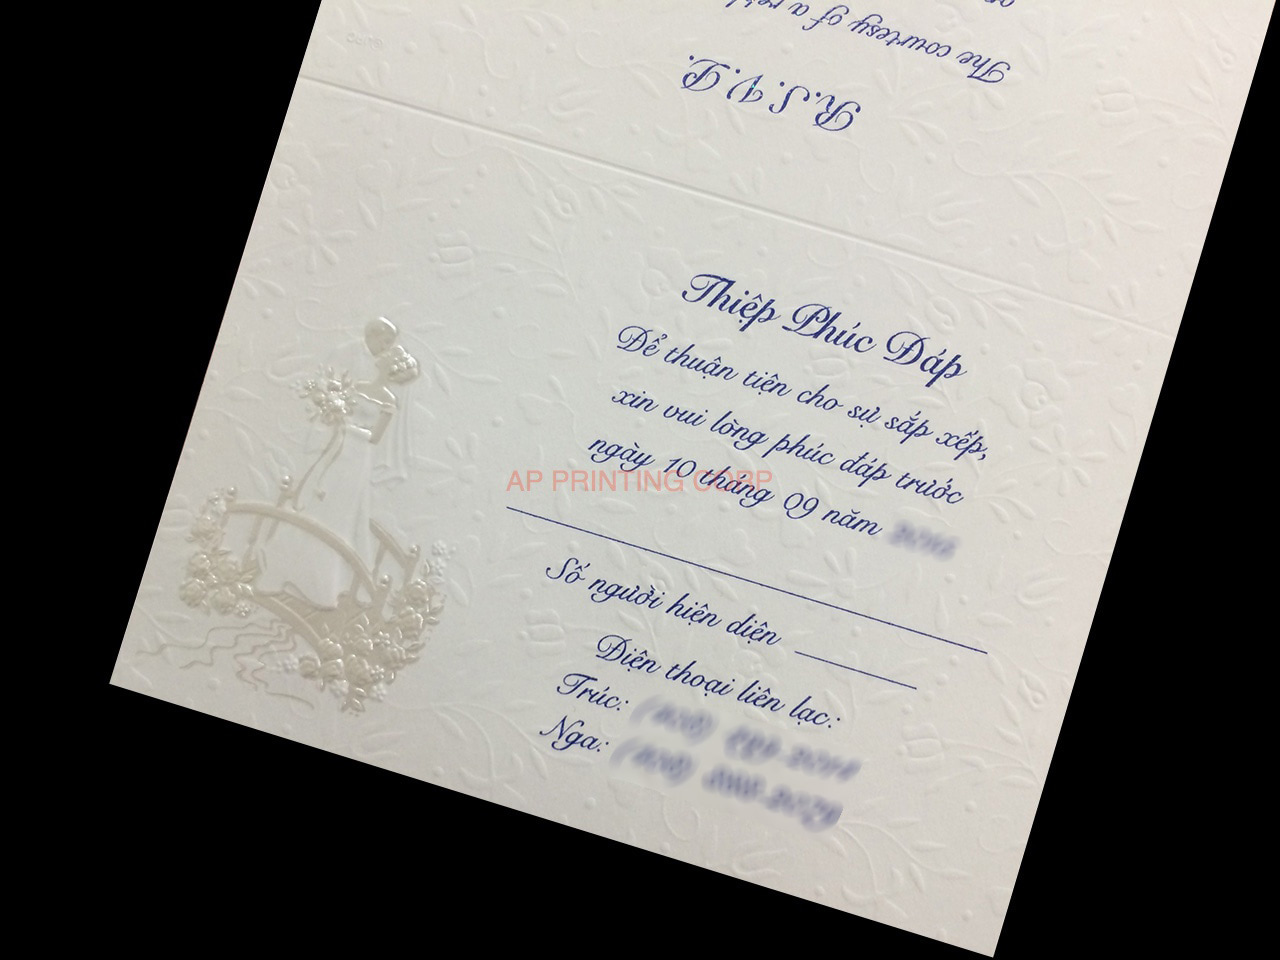 The courtesy of a
R.S.V.P.
Thiệp Phúc Đáp
Để thuận tiện cho sự sắp xếp,
xin vui lòng phúc đáp trước
ngày 10 tháng 09 năm
AP PRINTING CORP
Số người hiện diện
Điện thoại liên lạc:
Trúc:
Nga: